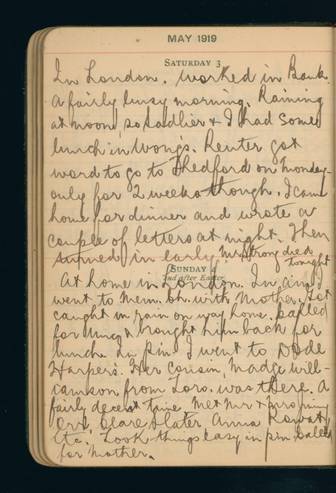 MAY 1919
SATURDAY 3
In London. Worked in Bank.
A fairly busy morning. Raining
at noon, so Sadlier & I had some
lunch in Wong's. Reuter got
word to go to Thedford on Monday -
only for 2 weeks though. I came
home for dinner and wrote a
couple of letters at night. Then
turned in early. Mr Strong died tonight
SUNDAY 4
2nd after Easter
At home in London. In a.m. I
went to Mem. Ch. with Mother. Got
caught in rain on way home. Called
for Unc & brought him back for
lunch. In p.m. I went to Dode
Harper's. Her cousin, Madge Will-
iamson from Toro. was there. A
fairly decent time. Met Mr &
Clare Slater, Anna
Etc. Took things easy in p.m. Called
for Mother.